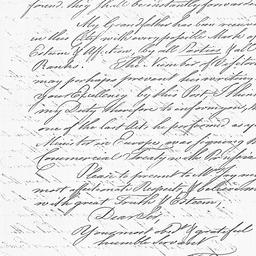 friend, they shall be instantly forwarded
My Grandfather has been received
in this City with every possible Mark of
Esteem & Affection, by all Parties & all
Ranks. The Number of Visitors
may perhaps prevent his writing
your Excellency by this Post, I think
my Duty therefore to inform you, that
one of the last Acts he performed as
Minister in Europe, was signing the
Commercial Treaty with the
Please to present to Mrs Jay my
most affectionate Respects, & believe
with great Truth & Esteem,
Dear Sir,
Your most obt & grateful
humble Servant